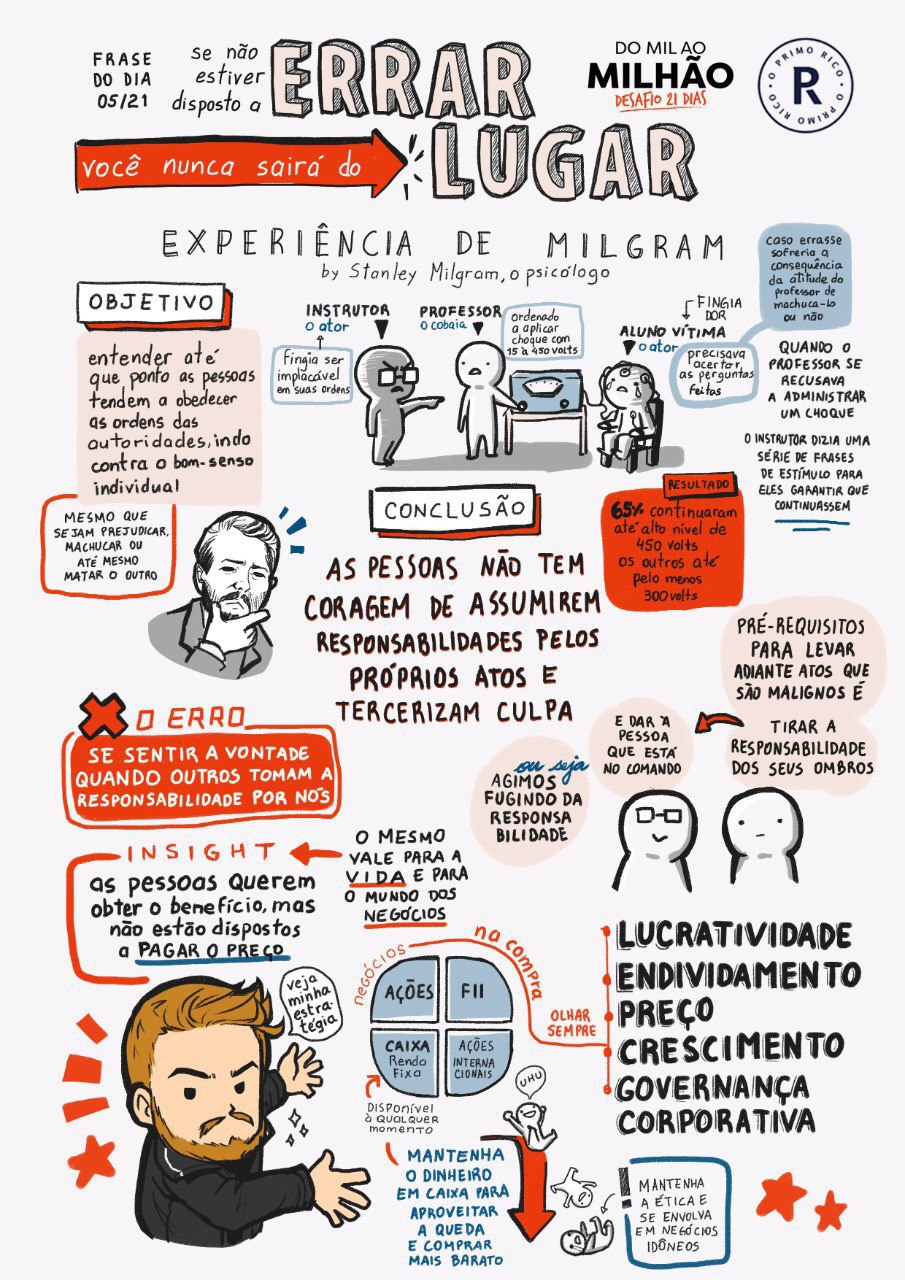 FRASE
DO DIA
05/21
se não
estiver
disposto a
ERRAR
você nunca sairá do
LUGAR
DO MIL AO
MILHÃO
DESAFIO 21 DIAS
O PRIMO RICO • O PRIMO RICO •
PR
EXPERIÊNCIA DE MILGRAM
by Stanley Milgram, o psicólogo
OBJETIVO
entender até
que ponto as pessoas
tendem a obedecer
as ordens das
autoridades, indo
contra o bom-senso
individual
MESMO QUE
SEJAM PREJUDICAR,
MACHUCAR OU
ATÉ MESMO
MATAR O OUTRO
INSTRUTOR
o ator
Fingia ser
implacável
em suas ordens
PROFESSOR
o cobaia
ordenado
a aplicar
choque com
15 à 450 volts
FINGIA
DOR
ALUNO VÍTIMA
o ator
precisava
acertar
as perguntas
feitas
caso errasse
sofreria a
consequência
da atitude do
professor de
machuca-lo
ou não
QUANDO O
PROFESSOR SE
RECUSAVA
A ADMINISTRAR
UM CHOQUE
O INSTRUTOR DIZIA UMA
SÉRIE DE FRASES
DE ESTÍMULO PARA
ELES GARANTIR QUE
CONTINUASSEM
RESULTADO
65% continuaram
até alto nível de
450 volts
os outros até
pelo menos
300 volts
CONCLUSÃO
AS PESSOAS NÃO TEM
CORAGEM DE ASSUMIREM
RESPONSABILIDADES PELOS
PRÓPRIOS ATOS E
TERCERIZAM CULPA
PRÉ-REQUISITOS
PARA LEVAR
ADIANTE ATOS QUE
SÃO MALIGNOS É
TIRAR A
RESPONSABILIDADE
DOS SEUS OMBROS
E DAR À
PESSOA
QUE ESTÁ
NO COMANDO
ou seja
AGIMOS
FUGINDO DA
RESPONSA
BILIDADE
O ERRO
SE SENTIR A VONTADE
QUANDO OUTROS TOMAM A
RESPONSABILIDADE POR NÓS
O MESMO
VALE PARA A
VIDA E PARA
O MUNDO DOS
NEGÓCIOS
INSIGHT
as pessoas querem
obter o benefício, mas
não estão dispostos
a PAGAR O PREÇO
veja
minha
estra-
tégia
negócios
AÇÕES
FII
CAIXA
Renda
Fixa
AÇÕES
INTERNA
CIONAIS
na compra
OLHAR
SEMPRE
LUCRATIVIDADE
ENDIVIDAMENTO
PREÇO
CRESCIMENTO
GOVERNANÇA
CORPORATIVA
DISPONÍVEL
À QUALQUER
MOMENTO
UHU
MANTENHA
O DINHEIRO
EM CAIXA PARA
APROVEITAR
A QUEDA
E COMPRAR
MAIS BARATO
!
MANTENHA
A ÉTICA E
SE ENVOLVA
EM NEGÓCIOS
IDÔNEOS